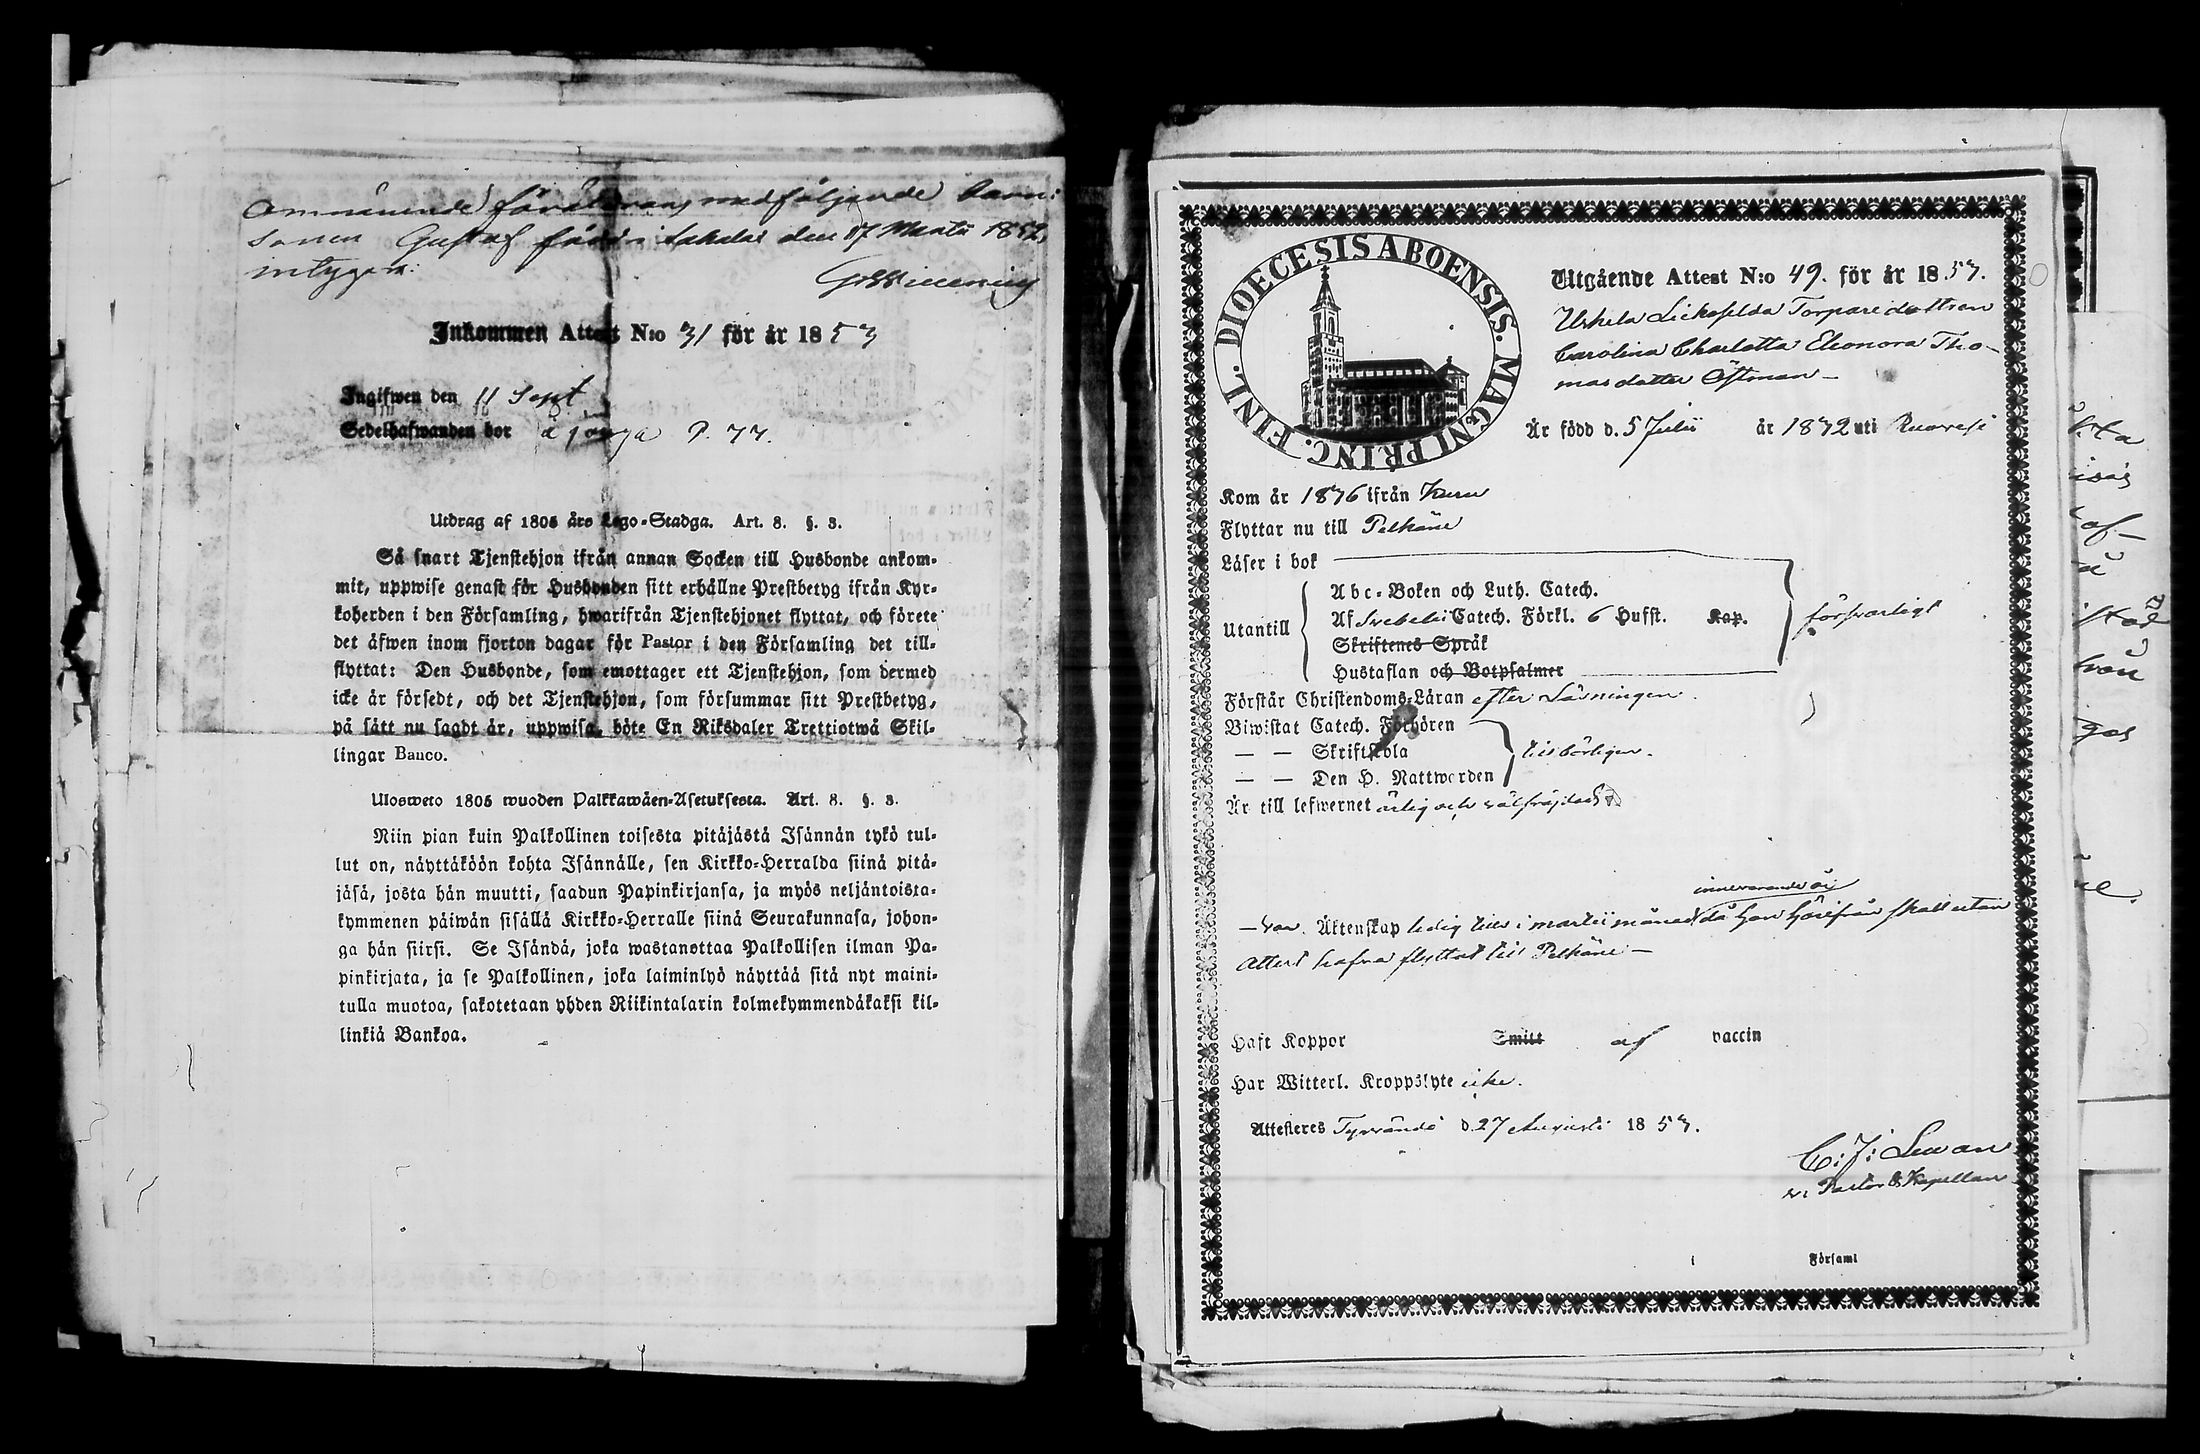 Omnämnde föräldrars medföljande barn:
sonen Gustaf född i Sahalax den 17 Martii 1852,
intygar:
Inkommen Attest N:o 31 för år 1853
Ingifwen den 11 Sept
Sedelhafwanden bor å P. 77.
Utdrag af 1805 års Lego-Stadga. Art. 8. §. 3.
Så snart Tjenstehjon ifrån annan Socken till Husbonde ankom-
mit, uppwise genast för Husbonden sitt erhållne Prestbetyg ifrån Kyr-
koherden i den Församling, hwarifrån Tjenstehjonet flyttat, och förete
det äfwen inom fjorton dagar för Pastor i den Församling det till-
flyttat: Den Husbonde, som emottager ett Tjenstehjon, som dermed
icke är försedt, och det Tjenstehjon, som försummar sitt Prestbetyg,
på sätt nu sagdt är, uppwisa, böte En Riksdaler Trettiotwå Skil-
lingar Banco.
Ulosweto 1805 wuoden Palkkawäen-Asetuksesta. Art. 8. §. 3.
Niin pian kuin Palkollinen toisesta pitäjästä Isännän tykö tul-
lut on, näyttäköön kohta Isännälle, sen Kirkko-Herralda siinä pitä-
jäsä, josta hän muutti, saadun Papinkirjansa, ja myös neljäntoista-
kymmenen päiwän sisällä Kirkko-Herralle siinä Seurakunnasa, johon-
ga hän siirsi. Se Isändä, joka wastanottaa Palkollisen ilman Pa-
pinkirjata, ja se Palkollinen, joka laiminlyö näyttää sitä nyt maini-
tulla muotoa, sakotetaan yhden Riikintalarin kolmekymmendäkaksi kil-
linkiä Bankoa.
FINL. DIOECESIS ABOENSIS. MAGNI PRINC.
Utgående Attest N:o 49. för år 1853.
Uskela Torparedottren
Carolina Charlotta Eleonora Tho-
masdotter Östman
Är född d. 5 Julii år 1832 uti Ruovesi
Kom år 1836 ifrån Kuru
Flyttar nu till Pelkäne
Läser i bok
Utantill
Abc-Boken och Luth. Catech.
Af Svebelii Catech. Förkl. 6 Hufst. Kap.
försvarligt
Skriftenes Språk
Hustaflan och Botpsalmer
Förstår Christendoms-Läran efter Läsningen
Biwistat Catech. Förhören
— — Skriftskola
tillbörligen.
— — Den H. Nattwarden
Är till lefwernet ärlig och välfräjdad
innevarande år
var Äktenskap ledig till i martii månad då hon härifrån skall utan
Attest hafva flyttat till Pelkäne
Haft Koppor Smitt af vaccin
Har Witterl. Kroppslyte icke.
Attesteres Tyrvändö d. 27 Augusti 1853.
C: J: Lewan
v. Pastor & Kapellan
i Församl